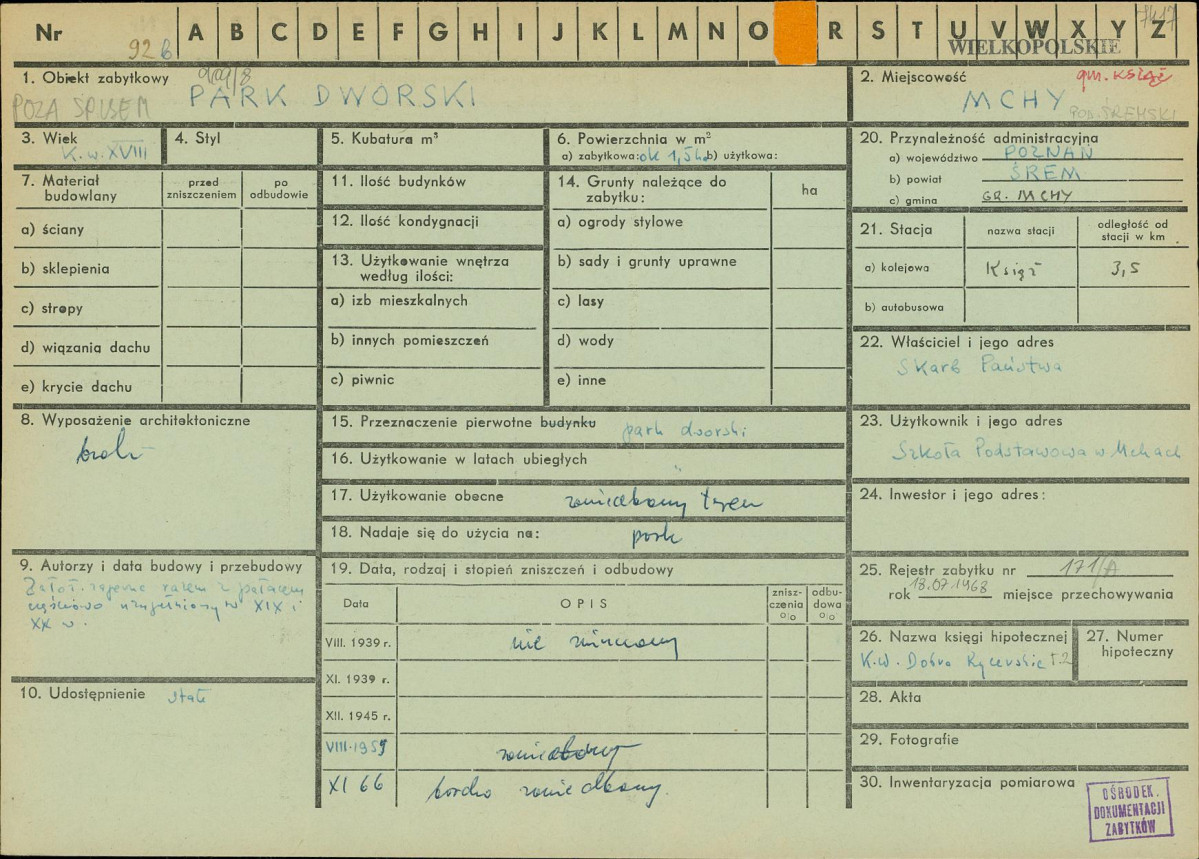 Nr 92 b A B C D E F G H I J K L M N O R S T U V W X Y Z
WIELKOPOLSKIE
1. Obiekt zabytkowy
POZA SPISEM PARK DWORSKI
2. Miejscowość gm. KSIĄŻ
MCHY POW. ŚREMSKI
3. Wiek
K. w. XVIII
4. Styl
5. Kubatura m³
6. Powierzchnia w m²
a) zabytkowa: ok 1,5 ha b) użytkowa:
20. Przynależność administracyjna
a) województwo POZNAŃ
b) powiat ŚREM
c) gmina GR. MCHY
7. Materiał budowlany
przed zniszczeniem
po odbudowie
a) ściany
b) sklepienia
c) stropy
d) wiązania dachu
e) krycie dachu
11. Ilość budynków
12. Ilość kondygnacji
13. Użytkowanie wnętrza
według ilości:
a) izb mieszkalnych
b) innych pomieszczeń
c) piwnic
14. Grunty należące do
zabytku:
ha
a) ogrody stylowe
b) sady i grunty uprawne
c) lasy
d) wody
e) inne
21. Stacja
nazwa stacji
odległość od
stacji w km
a) kolejowa Książ 3,5
b) autobusowa
22. Właściciel i jego adres
Skarb Państwa
8. Wyposażenie architektoniczne
brak
15. Przeznaczenie pierwotne budynku park dworski
16. Użytkowanie w latach ubiegłych "
17. Użytkowanie obecne zaniedbany teren
18. Nadaje się do użycia na: park
23. Użytkownik i jego adres
Szkoła Podstawowa w Mchach
24. Inwestor i jego adres:
9. Autorzy i data budowy i przebudowy
Założ. zapewne razem z pałacem
częściowo uzupełniony w XIX i
XX w.
10. Udostępnienie stałe
19. Data, rodzaj i stopień zniszczeń i odbudowy
Data
OPIS
znisz-
czenia
%
odbu-
dowa
%
VIII. 1939 r. nie zniszczony
XI. 1939 r.
XII. 1945 r.
VIII. 1959 zaniedbany
XI 66 bardzo zaniedbany.
25. Rejestr zabytku nr 171/A
rok 18.07.1968 miejsce przechowywania
26. Nazwa księgi hipotecznej
K.w. Dobra Rycerskie t. 2
27. Numer
hipoteczny
28. Akta
29. Fotografie
30. Inwentaryzacja pomiarowa
OŚRODEK
DOKUMENTACJI
ZABYTKÓW